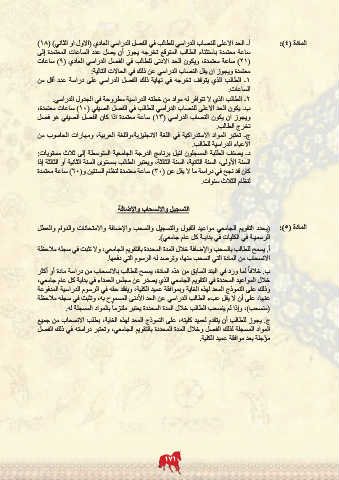 المادة (٤): أ. الحد الاعلى للنصاب الدراسي للطالب في الفصل الدراسي العادي (الاول او الثاني) (١٨)
ساعة معتمدة باستثناء الطالب المتوقع تخرجه يجوز أن يحمل عدد الساعات المعتمدة إلى
(٢١) ساعة معتمدة، ويكون الحد الأدنى للطالب في الفصل الدراسي العادي (٩) ساعات
معتمدة ويجوز ان يقل النصاب الدراسي عن ذلك في الحالات التالية:
١. الطالب الذي يتوقف تخرجه في نهاية ذلك الفصل الدراسي على دراسة عدد أقل من
الساعات.
٢. الطالب الذي لا تتوافر له مواد من خطته الدراسية مطروحة في الجدول الدراسي.
ب. يكون الحد الاعلى للنصاب الدراسي للطالب في الفصل الصيفي (١٠) ساعات معتمدة،
ويجوز ان يكون النصاب الدراسي (١٣) ساعة معتمدة اذا كان الفصل الصيفي هو فصل
تخرج الطالب.
ج. تعتبر المواد الاستدراكية في اللغة الانجليزية واللغة العربية، ومهارات الحاسوب من
الاعباء الدراسية للطالب.
د. يصنف الطلبة المسجلون لنيل برنامج الدرجة الجامعية المتوسطة إلى ثلاث مستويات:
السنة الأولى، السنة الثانية، السنة الثالثة، ويعتبر الطالب بمستوى السنة الثانية أو الثالثة إذا
كان قد نجح في دراسة ما لا يقل عن (٣٠) ساعة معتمدة لنظام السنتين و(٦٠) ساعة معتمدة
لنظام الثلاث سنوات.
التسجيل والانسحاب والإضافة
المادة (٥): (يحدد التقويم الجامعي مواعيد القبول والتسجيل والسحب والإضافة والامتحانات والدوام والعطل
الرسمية في الكليات في بداية كل عام جامعي).
أ. يسمح للطالب بالسحب والإضافة خلال المدة المحددة بالتقويم الجامعي، ولا تثبت في سجله ملاحظة
الانسحاب من المادة التي انسحب منها، وترصد له الرسوم التي دفعها.
ب. خلافاً لما ورد في البند السابق من هذه المادة، يسمح للطالب بالانسحاب من دراسة مادة أو أكثر
خلال المواعيد المحددة في التقويم الجامعي الذي يصدر عن مجلس العمداء في بداية كل عام جامعي،
وذلك على النموذج المعد لهذه الغاية وبموافقة عميد الكلية، ويفقد حقه في الرسوم الدراسية المدفوعة
عنها، على أن لا يقل عبء الطالب الدراسي عن الحد الأدنى المسموح به، وتثبت في سجله ملاحظة
(منسحب)، وإذا لم ينسحب الطالب خلال المدة المحددة يعتبر ملتزماً بالمواد المسجلة له.
ج. يجوز للطالب أن يتقدم لعميد كليته، على النموذج المعد لهذه الغاية، بطلب الانسحاب من جميع
المواد المسجلة لذلك الفصل وخلال المدة المحددة بالتقويم الجامعي، وتعتبر دراسته في ذلك الفصل
مؤجلة بعد موافقة عميد الكلية.
١٧١